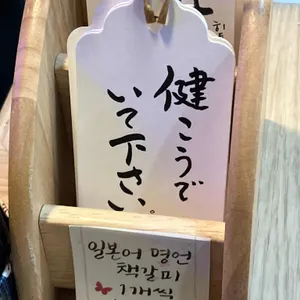 健こうで
いて下さい。
일본어 명언
책갈피
1개씩